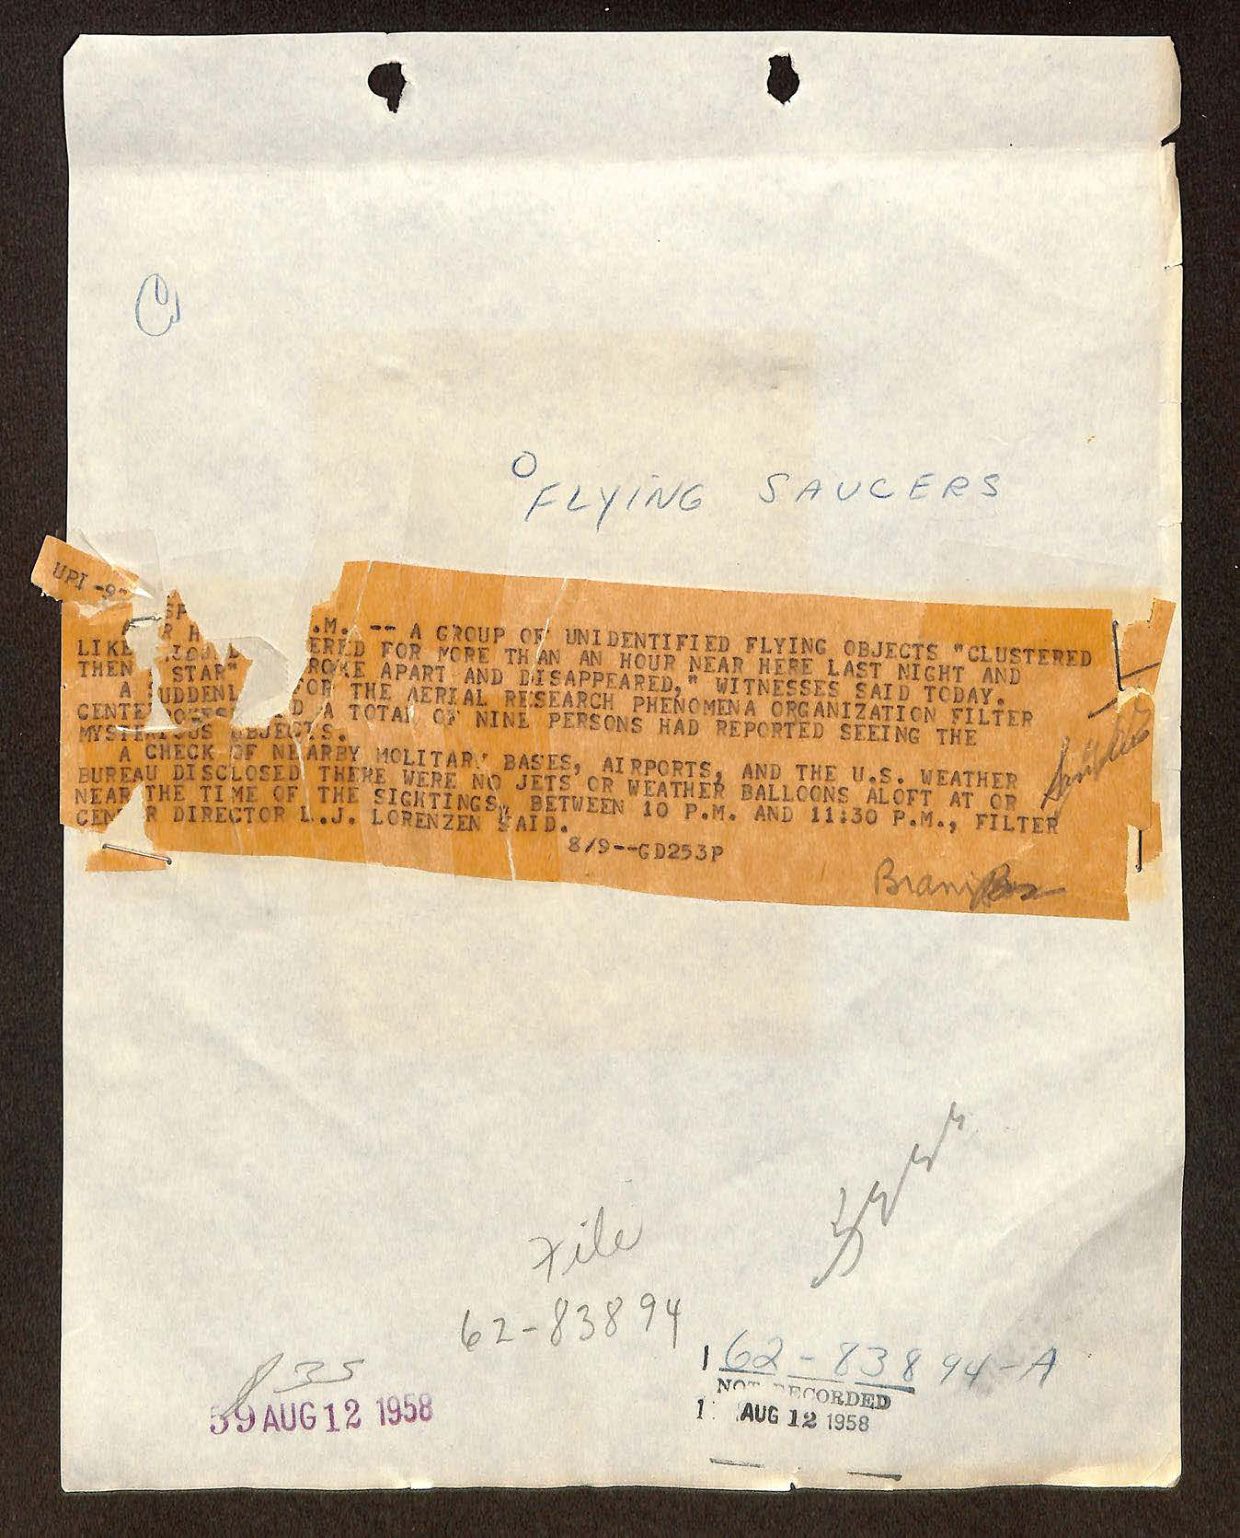 FLYING SAUCERS
UPI -9-
SP
.M. -- A GROUP OF UNIDENTIFIED FLYING OBJECTS "CLUSTERED
LIKE ERED FOR MORE THAN AN HOUR NEAR HERE LAST NIGHT AND
THEN STAR" ROKE APART AND DISAPPEARED," WITNESSES SAID TODAY.
A UDDENL FOR THE AERIAL RESEARCH PHENOMENA ORGANIZATION FILTER
CENTE D A TOTAL OF NINE PERSONS HAD REPORTED SEEING THE
MYSTERIOUS OBJECTS.
A CHECK OF NEARBY MOLITARY BASES, AIRPORTS, AND THE U.S. WEATHER
BUREAU DISCLOSED THERE WERE NO JETS OR WEATHER BALLOONS ALOFT AT OR
NEAR THE TIME OF THE SIGHTINGS, BETWEEN 10 P.M. AND 11:30 P.M., FILTER
CEN R DIRECTOR L.J. LORENZEN SAID.
8/9--GD253P
File
62-83894
162-83894-A
NOT RECORDED
AUG 12 1958
59 AUG 12 1958